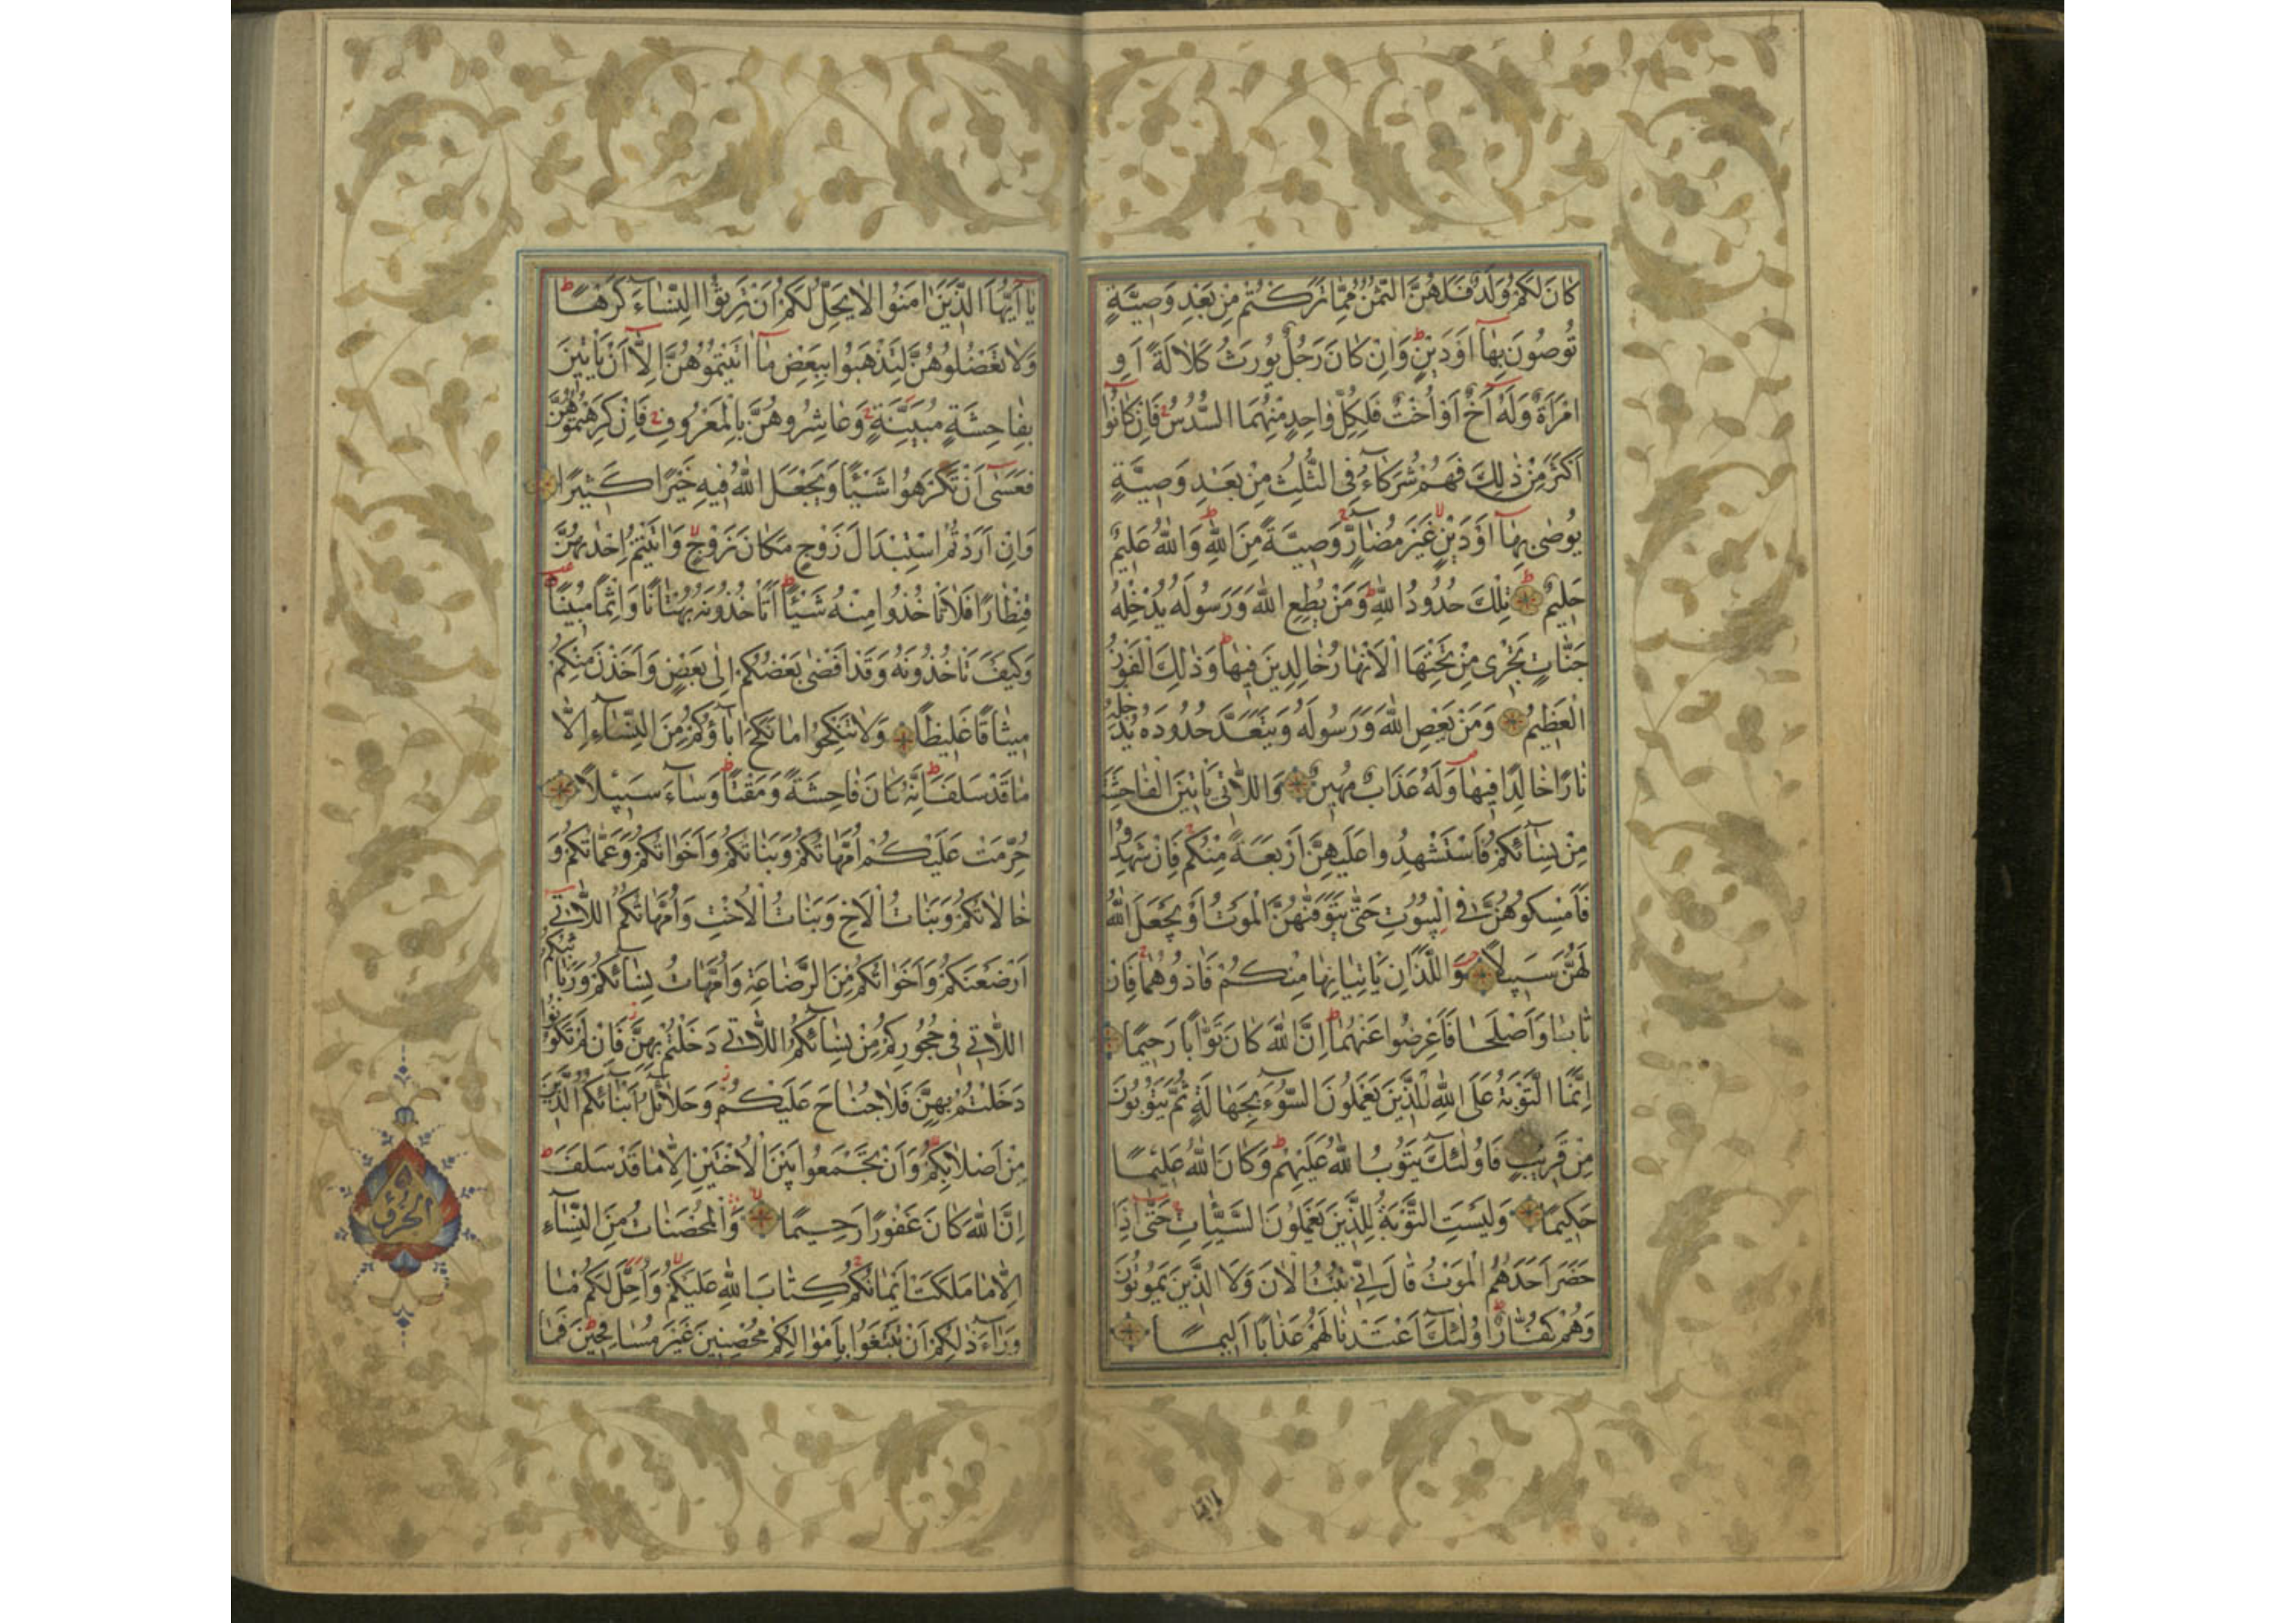 كَانَ لَكُمْ وَلَدٌ فَلَهُنَّ الثُّمُنُ مِمَّا تَرَكْتُمْ مِنْ بَعْدِ وَصِيَّةٍ
تُوصُونَ بِهَا أَوْ دَيْنٍ وَإِنْ كَانَ رَجُلٌ يُورَثُ كَلَالَةً أَوِ
امْرَأَةٌ وَلَهُ أَخٌ أَوْ أُخْتٌ فَلِكُلِّ وَاحِدٍ مِنْهُمَا السُّدُسُ فَإِنْ كَانُوا
أَكْثَرَ مِنْ ذَلِكَ فَهُمْ شُرَكَاءُ فِي الثُّلُثِ مِنْ بَعْدِ وَصِيَّةٍ
يُوصَى بِهَا أَوْ دَيْنٍ غَيْرَ مُضَارٍّ وَصِيَّةً مِنَ اللَّهِ وَاللَّهُ عَلِيمٌ
حَلِيمٌ تِلْكَ حُدُودُ اللَّهِ وَمَنْ يُطِعِ اللَّهَ وَرَسُولَهُ يُدْخِلْهُ
جَنَّاتٍ تَجْرِي مِنْ تَحْتِهَا الْأَنْهَارُ خَالِدِينَ فِيهَا وَذَلِكَ الْفَوْزُ
الْعَظِيمُ وَمَنْ يَعْصِ اللَّهَ وَرَسُولَهُ وَيَتَعَدَّ حُدُودَهُ يُدْخِلْهُ
نَارًا خَالِدًا فِيهَا وَلَهُ عَذَابٌ مُهِينٌ وَاللَّاتِي يَأْتِينَ الْفَاحِشَةَ
مِنْ نِسَائِكُمْ فَاسْتَشْهِدُوا عَلَيْهِنَّ أَرْبَعَةً مِنْكُمْ فَإِنْ شَهِدُوا
فَأَمْسِكُوهُنَّ فِي الْبُيُوتِ حَتَّى يَتَوَفَّاهُنَّ الْمَوْتُ أَوْ يَجْعَلَ اللَّهُ
لَهُنَّ سَبِيلًا وَاللَّذَانِ يَأْتِيَانِهَا مِنْكُمْ فَآذُوهُمَا فَإِنْ
تَابَا وَأَصْلَحَا فَأَعْرِضُوا عَنْهُمَا إِنَّ اللَّهَ كَانَ تَوَّابًا رَحِيمًا
إِنَّمَا التَّوْبَةُ عَلَى اللَّهِ لِلَّذِينَ يَعْمَلُونَ السُّوءَ بِجَهَالَةٍ ثُمَّ يَتُوبُونَ
مِنْ قَرِيبٍ فَأُولَئِكَ يَتُوبُ اللَّهُ عَلَيْهِمْ وَكَانَ اللَّهُ عَلِيمًا
حَكِيمًا وَلَيْسَتِ التَّوْبَةُ لِلَّذِينَ يَعْمَلُونَ السَّيِّئَاتِ حَتَّى إِذَا
حَضَرَ أَحَدَهُمُ الْمَوْتُ قَالَ إِنِّي تُبْتُ الْآنَ وَلَا الَّذِينَ يَمُوتُونَ
وَهُمْ كُفَّارٌ أُولَئِكَ أَعْتَدْنَا لَهُمْ عَذَابًا أَلِيمًا
يَا أَيُّهَا الَّذِينَ آمَنُوا لَا يَحِلُّ لَكُمْ أَنْ تَرِثُوا النِّسَاءَ كَرْهًا
وَلَا تَعْضُلُوهُنَّ لِتَذْهَبُوا بِبَعْضِ مَا آتَيْتُمُوهُنَّ إِلَّا أَنْ يَأْتِينَ
بِفَاحِشَةٍ مُبَيِّنَةٍ وَعَاشِرُوهُنَّ بِالْمَعْرُوفِ فَإِنْ كَرِهْتُمُوهُنَّ
فَعَسَى أَنْ تَكْرَهُوا شَيْئًا وَيَجْعَلَ اللَّهُ فِيهِ خَيْرًا كَثِيرًا
وَإِنْ أَرَدْتُمُ اسْتِبْدَالَ زَوْجٍ مَكَانَ زَوْجٍ وَآتَيْتُمْ إِحْدَاهُنَّ
قِنْطَارًا فَلَا تَأْخُذُوا مِنْهُ شَيْئًا أَتَأْخُذُونَهُ بُهْتَانًا وَإِثْمًا مُبِينًا
وَكَيْفَ تَأْخُذُونَهُ وَقَدْ أَفْضَى بَعْضُكُمْ إِلَى بَعْضٍ وَأَخَذْنَ مِنْكُمْ
مِيثَاقًا غَلِيظًا وَلَا تَنْكِحُوا مَا نَكَحَ آبَاؤُكُمْ مِنَ النِّسَاءِ إِلَّا
مَا قَدْ سَلَفَ إِنَّهُ كَانَ فَاحِشَةً وَمَقْتًا وَسَاءَ سَبِيلًا
حُرِّمَتْ عَلَيْكُمْ أُمَّهَاتُكُمْ وَبَنَاتُكُمْ وَأَخَوَاتُكُمْ وَعَمَّاتُكُمْ وَ
خَالَاتُكُمْ وَبَنَاتُ الْأَخِ وَبَنَاتُ الْأُخْتِ وَأُمَّهَاتُكُمُ اللَّاتِي
أَرْضَعْنَكُمْ وَأَخَوَاتُكُمْ مِنَ الرَّضَاعَةِ وَأُمَّهَاتُ نِسَائِكُمْ وَرَبَائِبُكُمُ
اللَّاتِي فِي حُجُورِكُمْ مِنْ نِسَائِكُمُ اللَّاتِي دَخَلْتُمْ بِهِنَّ فَإِنْ لَمْ تَكُونُوا
دَخَلْتُمْ بِهِنَّ فَلَا جُنَاحَ عَلَيْكُمْ وَحَلَائِلُ أَبْنَائِكُمُ الَّذِينَ
مِنْ أَصْلَابِكُمْ وَأَنْ تَجْمَعُوا بَيْنَ الْأُخْتَيْنِ إِلَّا مَا قَدْ سَلَفَ
إِنَّ اللَّهَ كَانَ غَفُورًا رَحِيمًا وَالْمُحْصَنَاتُ مِنَ النِّسَاءِ
إِلَّا مَا مَلَكَتْ أَيْمَانُكُمْ كِتَابَ اللَّهِ عَلَيْكُمْ وَأُحِلَّ لَكُمْ مَا
وَرَاءَ ذَلِكُمْ أَنْ تَبْتَغُوا بِأَمْوَالِكُمْ مُحْصِنِينَ غَيْرَ مُسَافِحِينَ فَمَا